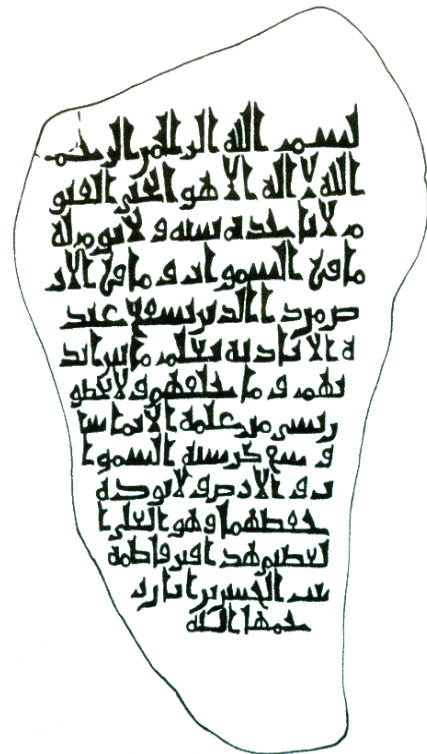 بسم الله الرحمن الرحيم
الله لا اله الا هو الحي القيو
م لا تاخذه سنه و لا نوم له
ما في السموات و ما في الار
ض من ذا الذي يشفع عند
ه الا باذنه يعلم ما بين ايد
يهم و ما خلفهم و لا يحيطو
ن بشي من علمه الا بما شا
و سع كرسيه السموا
ت و الارض و لا يوده
حفظهما و هو العلي ا
لعظيم هذا قبر فاطمة
بنت الحسين بن
حمها الله